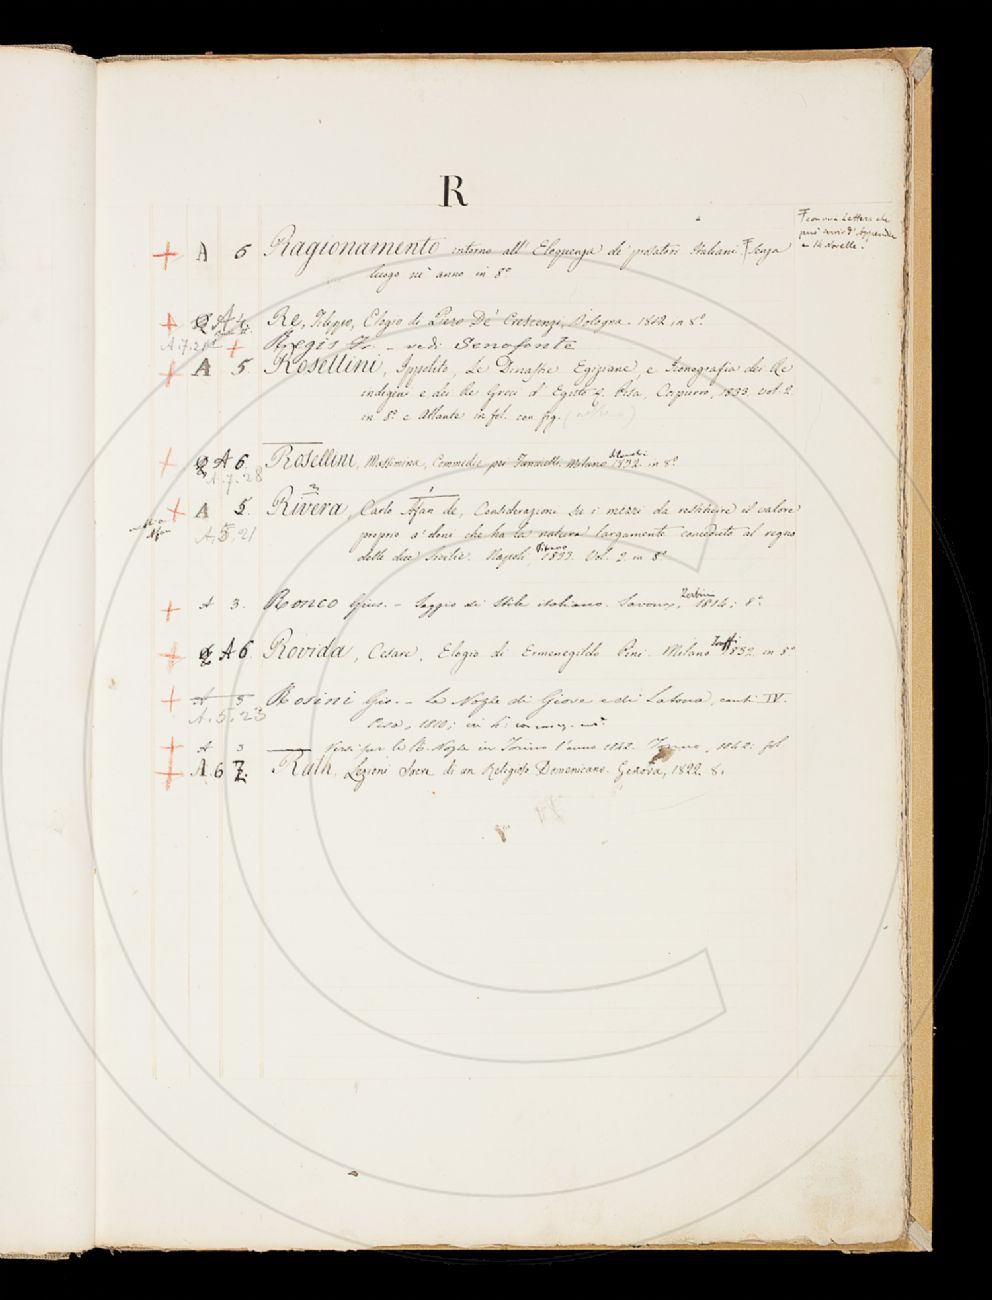 R
con una Lettera che
può servir d'Appendice
a 14 novelle.
+ A 5 Ragionamento intorno all' Eloquenza de' prosatori Italiani. Senza
luogo nè anno in 8º
+ A 4. Re, Filippo, Elogio di Piero De' Crescenzi, Bologna. 1812 in 8º.
A.7.21 + Regis Fr. - vedi Senofonte
+ A 5. Rosellini, Ippolito, Le Dinastie Egiziane, e Iconografia dei Re
indigeni e dei Re Greci d' Egitto &. Pisa, Capurro, 1833 vol. 2
in 8º e Atlante in fol. con fig.
+ A 6. Rosellini, Massimina, Commedie pei Fanciulli. Milano 1832. in 8º
A.7.28
+ A 5. Rivera, Carlo Afan de, Considerazione su i mezzi da restituire il valore
A.5.21 proprio a' doni che ha la natura largamente conceduto al regno
delle due Sicilie. Napoli, 1833. Vol. 2. in 8º
+ A 3. Ronco Gius. - Saggio di Stile italiano. Savona, Zerbini 1814; 8º.
+ A 6 Rovida, Cesare, Elogio di Ermenegildo Pini. Milano 1832. in 8º
+ A 3 Rosini Gio. - Le Nozze di Giove e di Latona, canti IV.
A.5.23 Pisa, 1810; in 4:
+ A 3 Versi per le R. Nozze in Torino l'anno 1842. 1842: fol
+ A 6 7. Ruth. Lezioni Sacre di un Religioso Domenicano. Genova, 1822. 8.
C